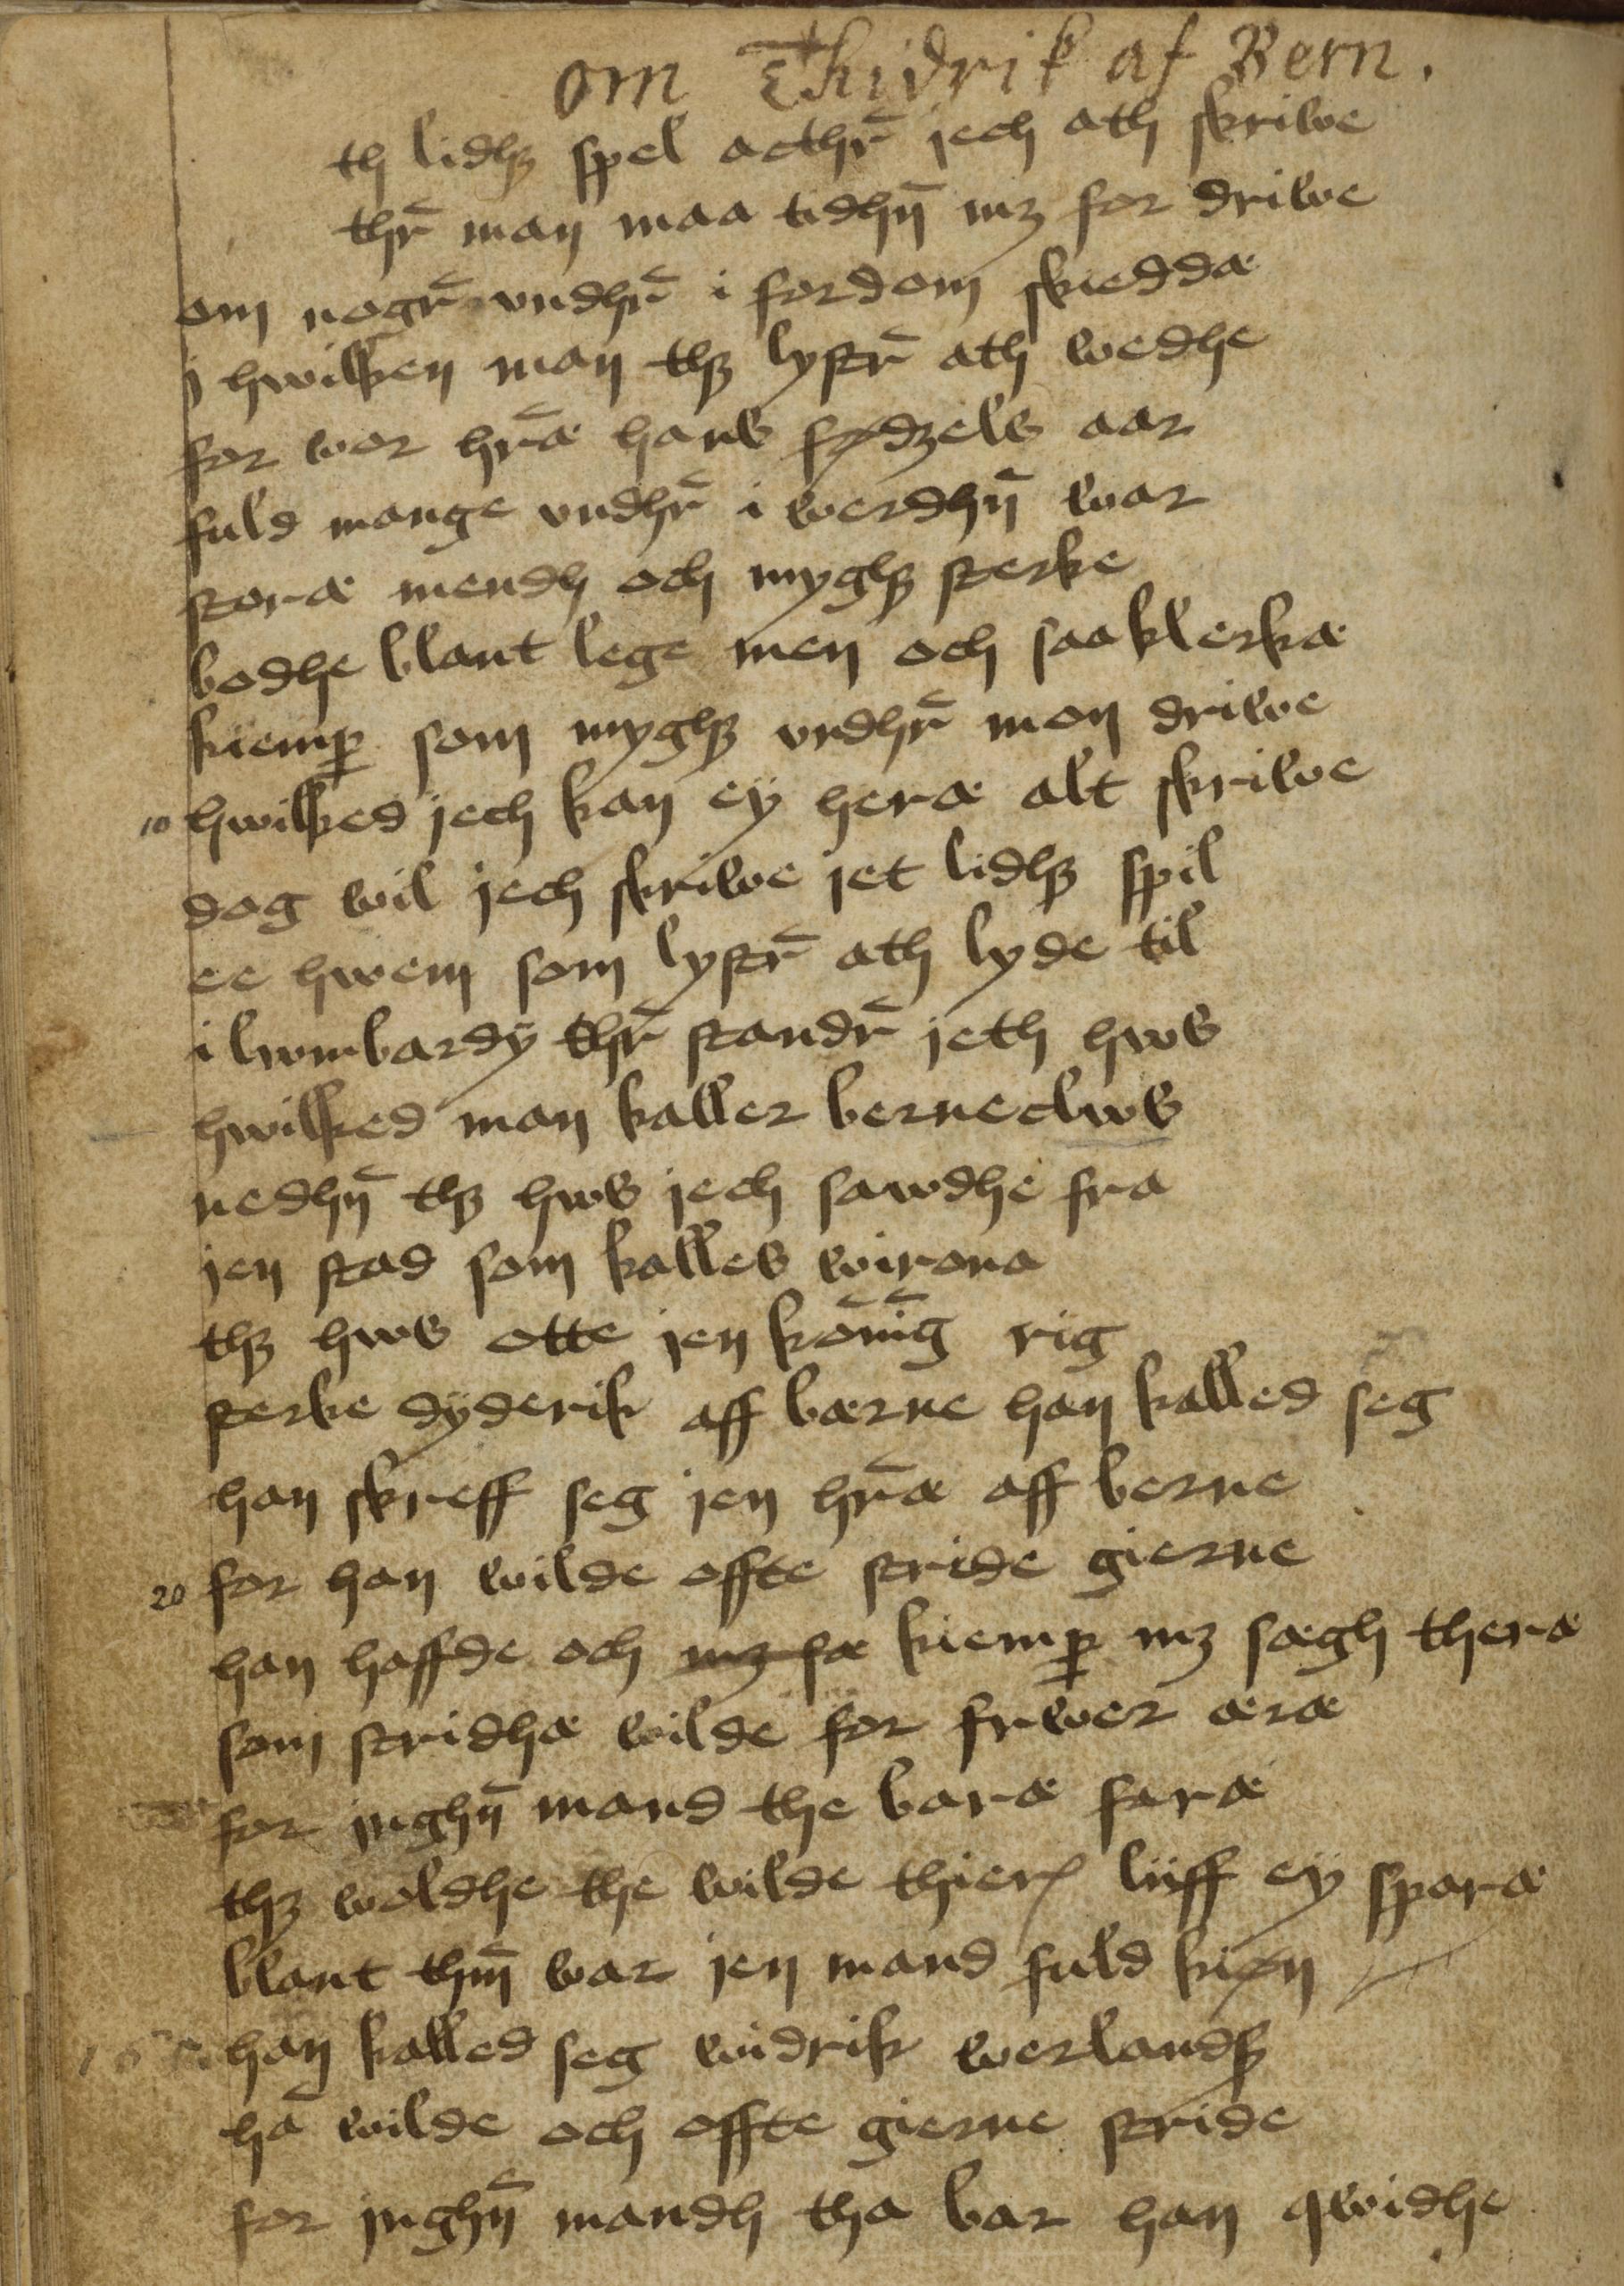 om Thidrik af Bern.
th lidhꝫ spel acthr̄ jech ath skriwe
thr̄ man maa tidhn̄ mꝫ for driwe
om nogr̄ vndhr̄ i fordom skieddæ
j hwilken man thꝫ lystr̄ ath wedhe
for wor hr̄æ hans fødzels aar
fuld mange vndhr̄ i werdhn̄ war
storæ mendh och myghꝫ sterke
bodhe blant lege men och saa klerkæ
kiemꝑ som myghꝫ vndhr̄ mon driwe
10 hwilked jech kan ey heræ alt skriwe
dog wil jech skriwe jet lidhꝫ spil
ee hwem som lystr̄ ath lyde til
i lwmbardy thr̄ standr̄ jeth hws
hwilked man kaller berneclws
nedhn̄ thꝫ hws jech sawdhe fra
jen stad som kalles wirona
thꝫ hws otte jen kōnīg rig
sterke dyderik aff bærne han kalled seg
han skreff seg jen hr̄æ aff berne
20 for han wilde offte stride gierne
han haffde och mꝫ sæ kiemꝑ mꝫ sægh theræ
som stridhæ wilde for frwer æræ
for jnghn̄ mand the baræ faræ
thꝫ woldhe the wilde thierꝭ liiff ey sparæ
blant thm̄ war jen mand fuld kiøn
han kalled seg widrik werlandꝫ
hā wilde och offte gierne stride
for jnghn̄ mandh tha bar han qwidhe